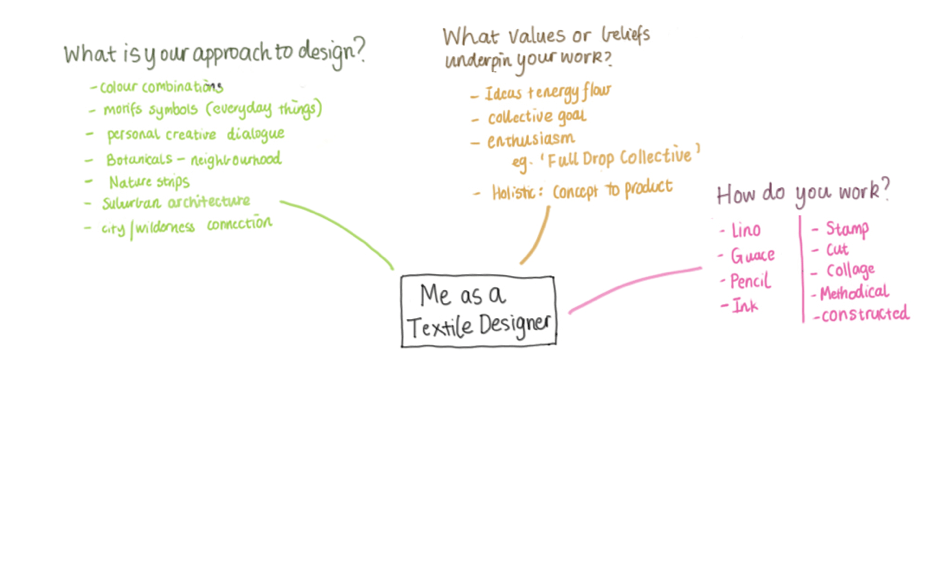 What is your approach to design?
- colour combinations
- motifs symbols (everyday things)
- personal creative dialogue
- Botanicals - neighbourhood
- Nature strips
- Suburban architecture
- city/wilderness connection
What values or beliefs
underpin your work?
- Ideas + energy flow
- collective goal
- enthusiasm
eg. 'Full Drop Collective'
- Holistic: Concept to product
How do you work?
- Lino
- Guace
- Pencil
- Ink
- Stamp
- Cut
- Collage
- Methodical
- constructed
Me as a
Textile Designer